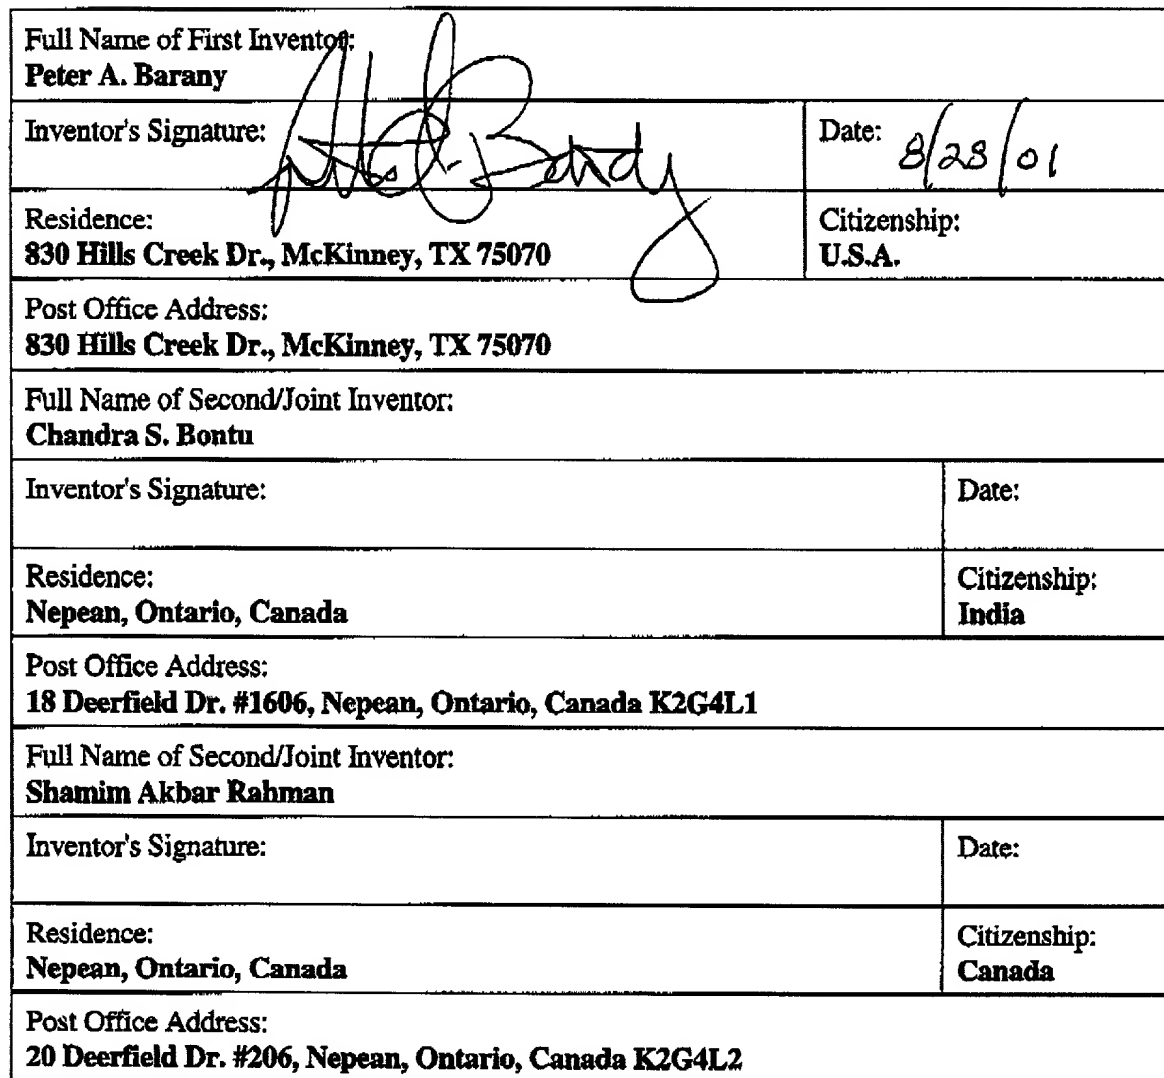 Full Name of First Inventor:
Peter A. Barany
Inventor's Signature: Peter A. Barany
Date: 8/28/01
Residence:
830 Hills Creek Dr., McKinney, TX 75070
Citizenship:
U.S.A.
Post Office Address:
830 Hills Creek Dr., McKinney, TX 75070
Full Name of Second/Joint Inventor:
Chandra S. Bontu
Inventor's Signature:
Date:
Residence:
Nepean, Ontario, Canada
Citizenship:
India
Post Office Address:
18 Deerfield Dr. #1606, Nepean, Ontario, Canada K2G4L1
Full Name of Second/Joint Inventor:
Shamim Akbar Rahman
Inventor's Signature:
Date:
Residence:
Nepean, Ontario, Canada
Citizenship:
Canada
Post Office Address:
20 Deerfield Dr. #206, Nepean, Ontario, Canada K2G4L2